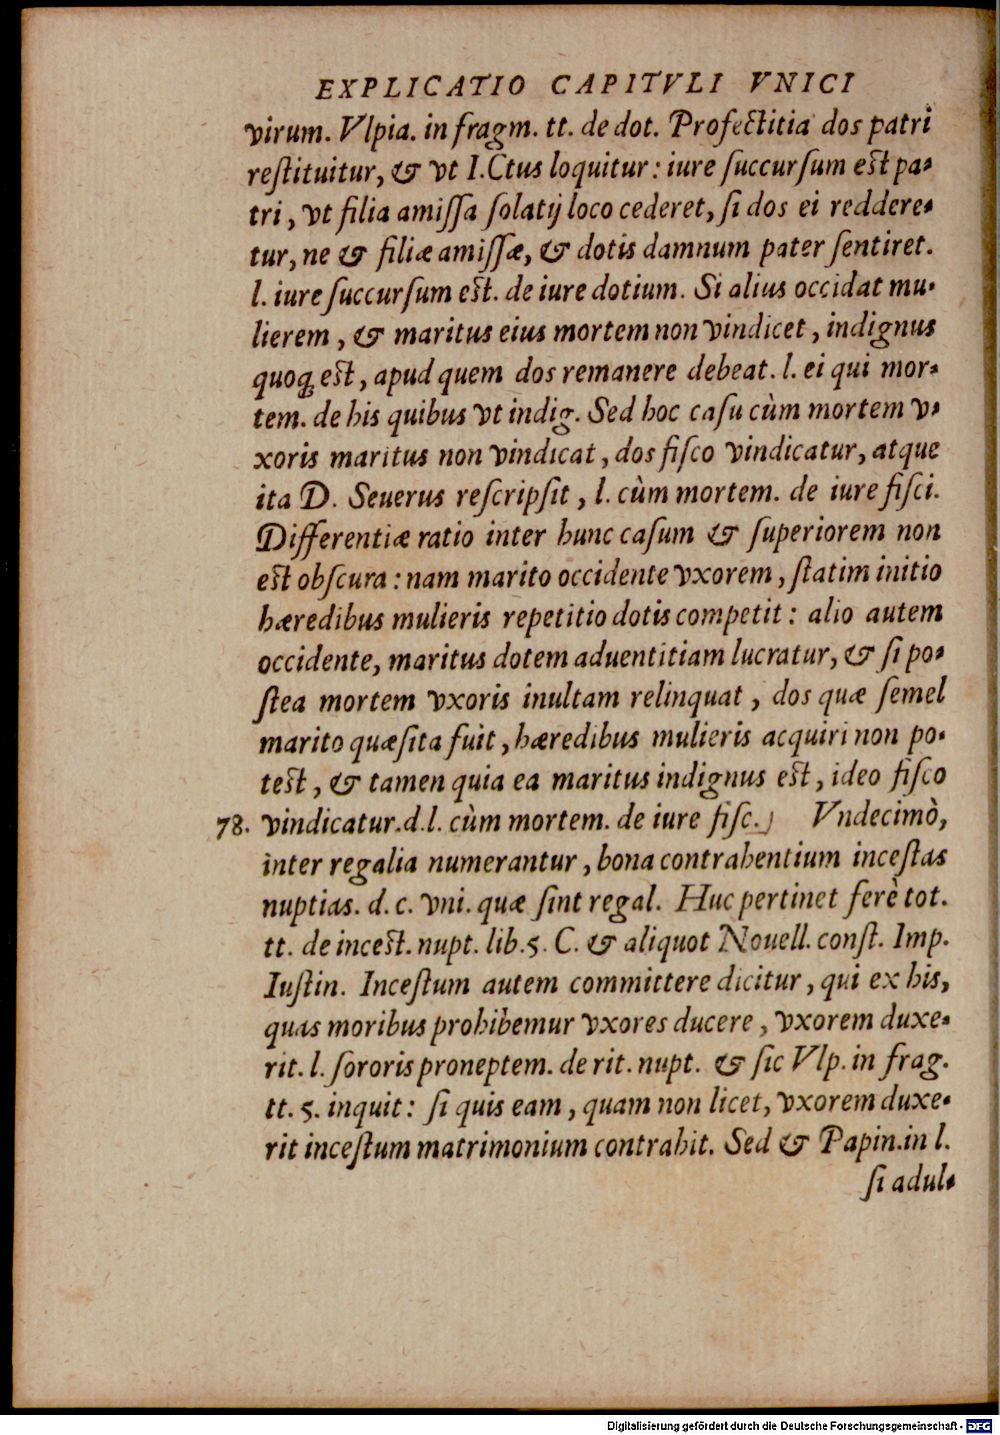 EXPLICATIO CAPITVLI VNICI
virum. Vlpia. in fragm. tt. de dot. Profectitia dos patri
reſtituitur, & vt I.Ctus loquitur: iure ſuccurſum eſt pa-
tri, vt filia amiſſa ſolatij loco cederet, ſi dos ei reddere-
tur, ne & filiæ amiſſæ, & dotis damnum pater ſentiret.
l. iure ſuccurſum eſt. de iure dotium. Si alius occidat mu-
lierem, & maritus eius mortem non vindicet, indignus
quoq; eſt, apud quem dos remanere debeat. l. ei qui mor-
tem. de his quibus vt indig. Sed hoc caſu cùm mortem v-
xoris maritus non vindicat, dos fiſco vindicatur, atque
ita D. Seuerus reſcripſit, l. cùm mortem. de iure fiſci.
Differentiæ ratio inter hunc caſum & ſuperiorem non
eſt obſcura: nam marito occidente vxorem, ſtatim initio
hæredibus mulieris repetitio dotis competit: alio autem
occidente, maritus dotem aduentitiam lucratur, & ſi po-
ſtea mortem vxoris inultam relinquat, dos quæ ſemel
marito quæſita fuit, hæredibus mulieris acquiri non po-
teſt, & tamen quia ea maritus indignus eſt, ideo fiſco
78. vindicatur.d.l. cùm mortem. de iure fiſc.⌋ Vndecimò,
inter regalia numerantur, bona contrahentium inceſtas
nuptias. d. c. vni. quæ ſint regal. Huc pertinet ferè tot.
tt. de inceſt. nupt. lib.5. C. & aliquot Nouell. conſt. Imp.
Iuſtin. Inceſtum autem committere dicitur, qui ex his,
quas moribus prohibemur vxores ducere, vxorem duxe-
rit. l. ſororis proneptem. de rit. nupt. & ſic Vlp. in frag.
tt. 5. inquit: ſi quis eam, quam non licet, vxorem duxe-
rit inceſtum matrimonium contrahit. Sed & Papin.in l.
ſi adul-
Digitalisierung gefördert durch die Deutsche Forschungsgemeinschaft - DFG